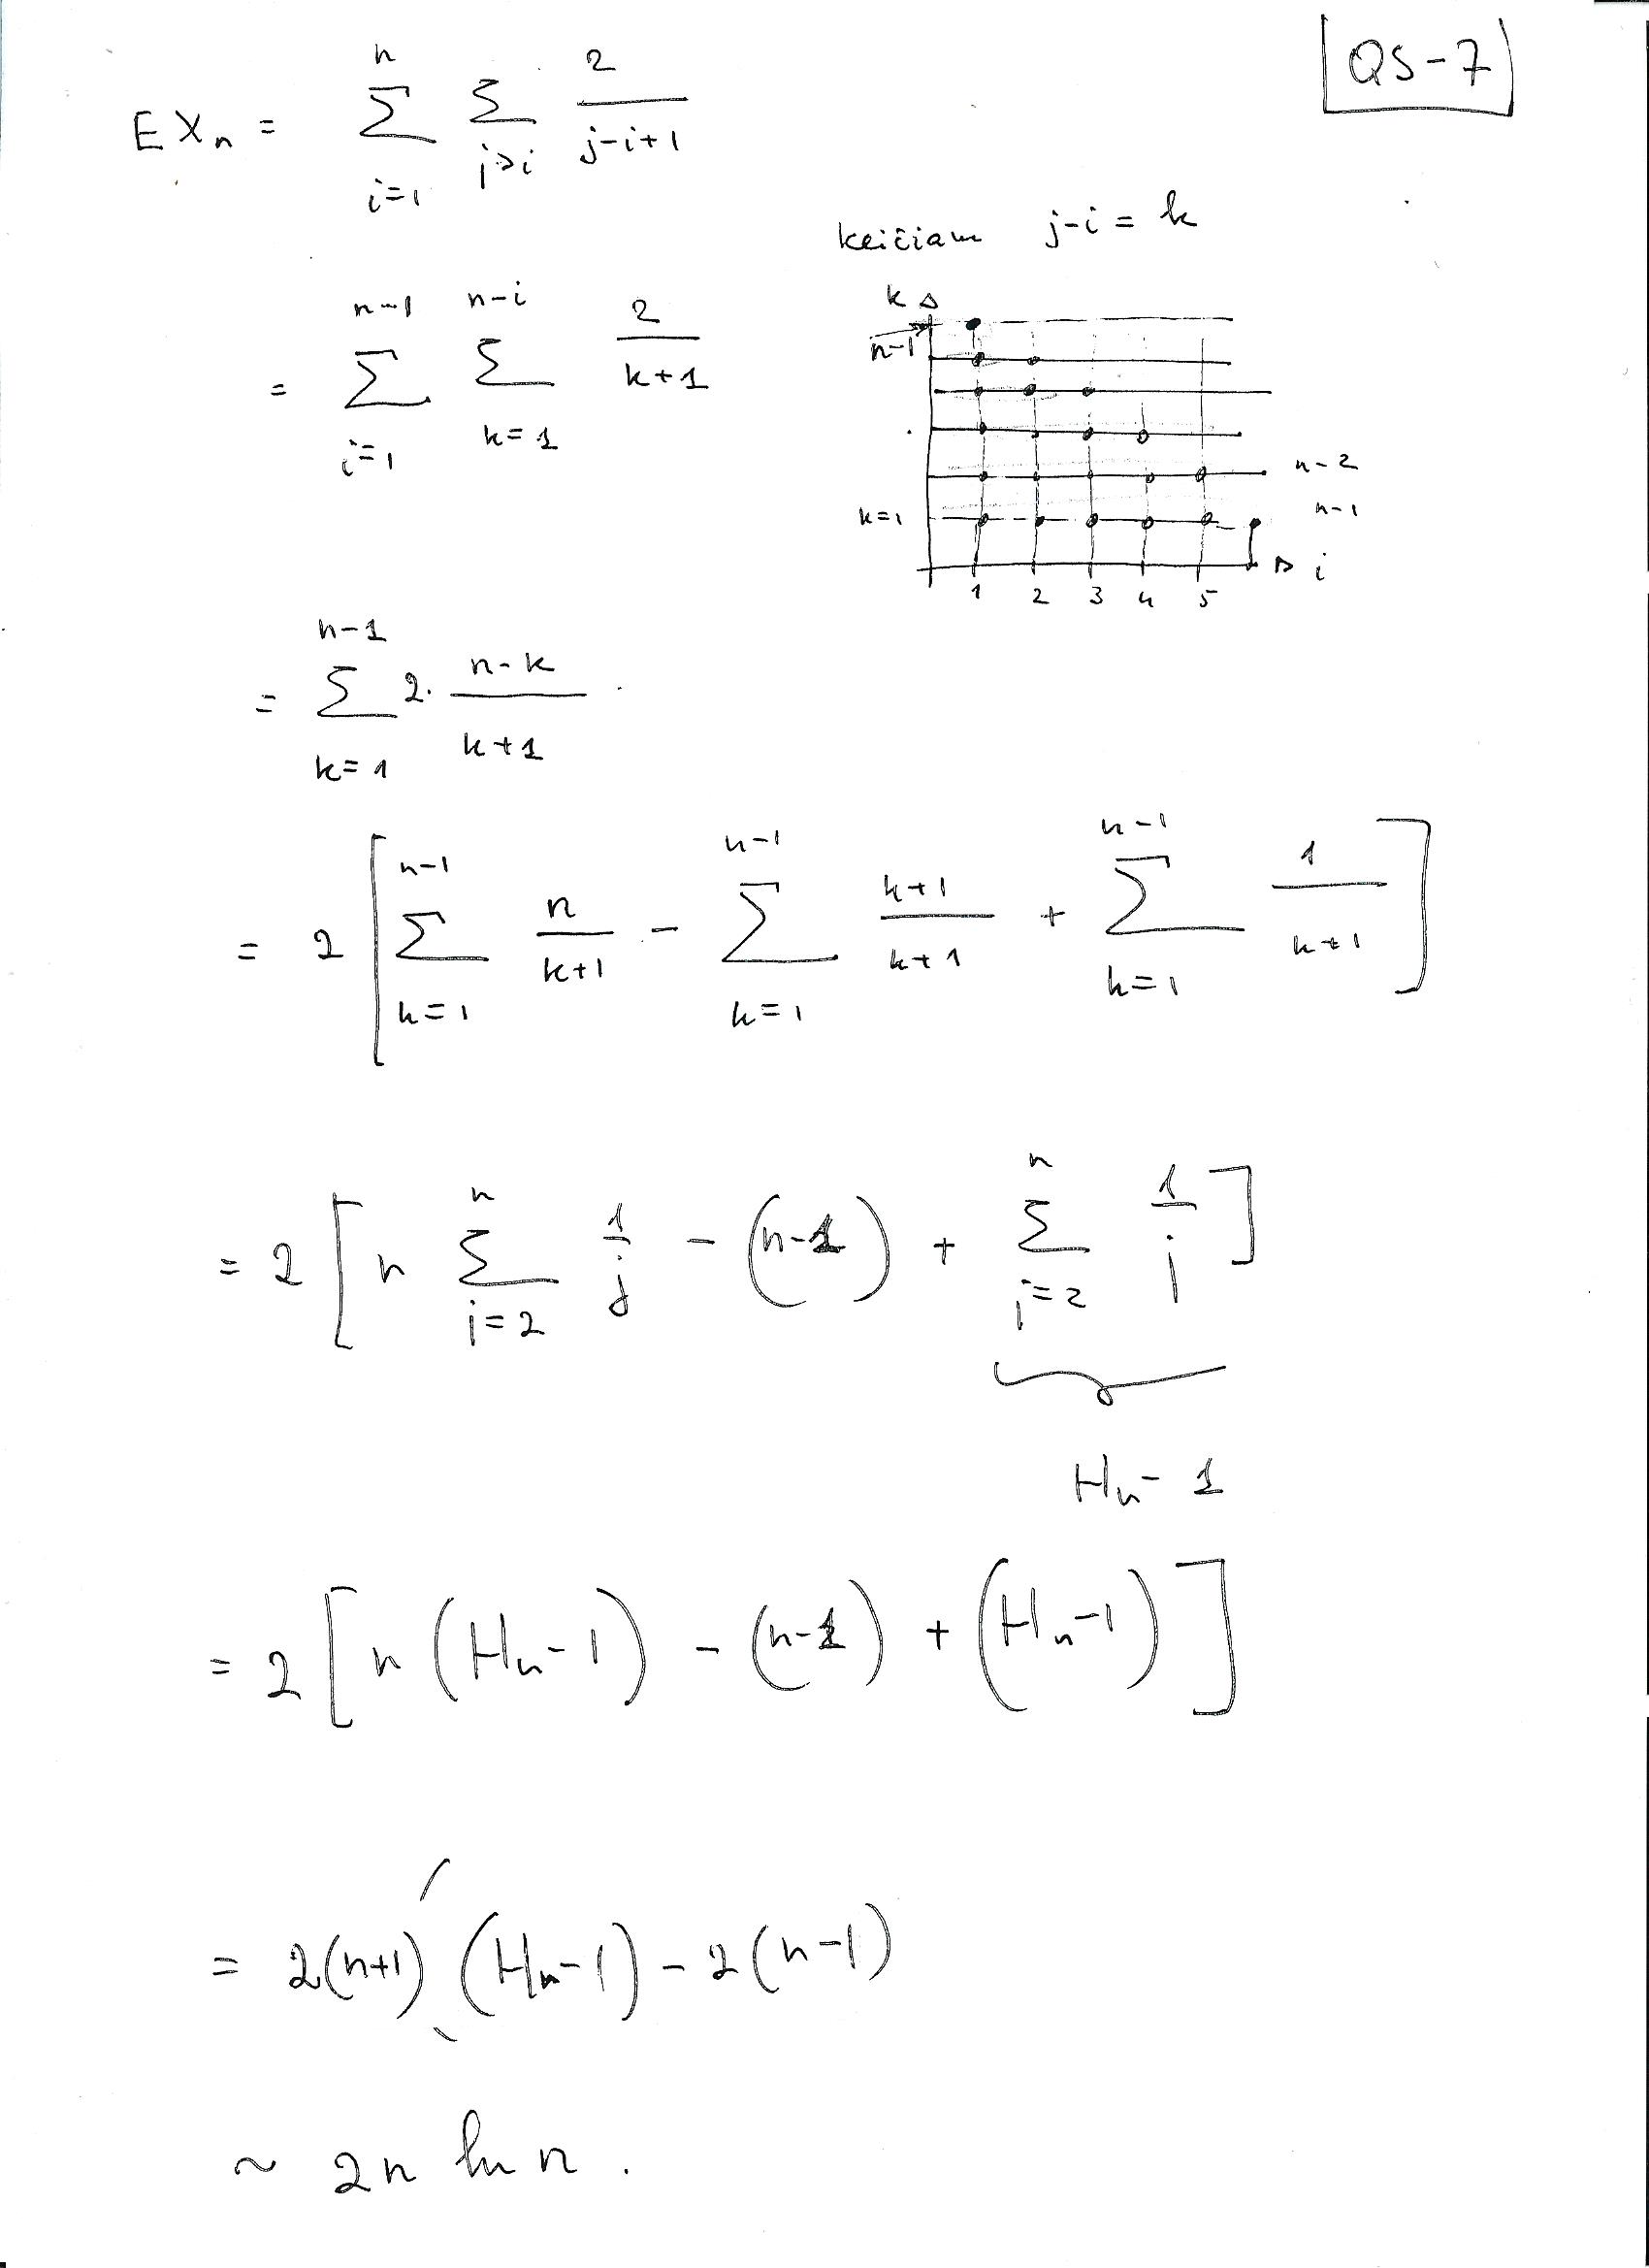 QS-7
E Xₙ = ∑_{i=1}^{n} ∑_{j>i} 2/(j-i+1)
keičiam j-i = k
= ∑_{i=1}^{n-1} ∑_{k=1}^{n-i} 2/(k+1)
k
n-1
n-2
k=1
n-1
i
1 2 3 4 5
= ∑_{k=1}^{n-1} 2· (n-k)/(k+1)
= 2 [ ∑_{k=1}^{n-1} n/(k+1) - ∑_{k=1}^{n-1} (k+1)/(k+1) + ∑_{k=1}^{n-1} 1/(k+1) ]
= 2 [ n ∑_{j=2}^{n} 1/j - (n-1) + ∑_{j=2}^{n} 1/j ]
Hₙ - 1
= 2 [ n (Hₙ - 1) - (n-1) + (Hₙ - 1) ]
= 2(n+1) (Hₙ - 1) - 2(n-1)
~ 2n ln n.